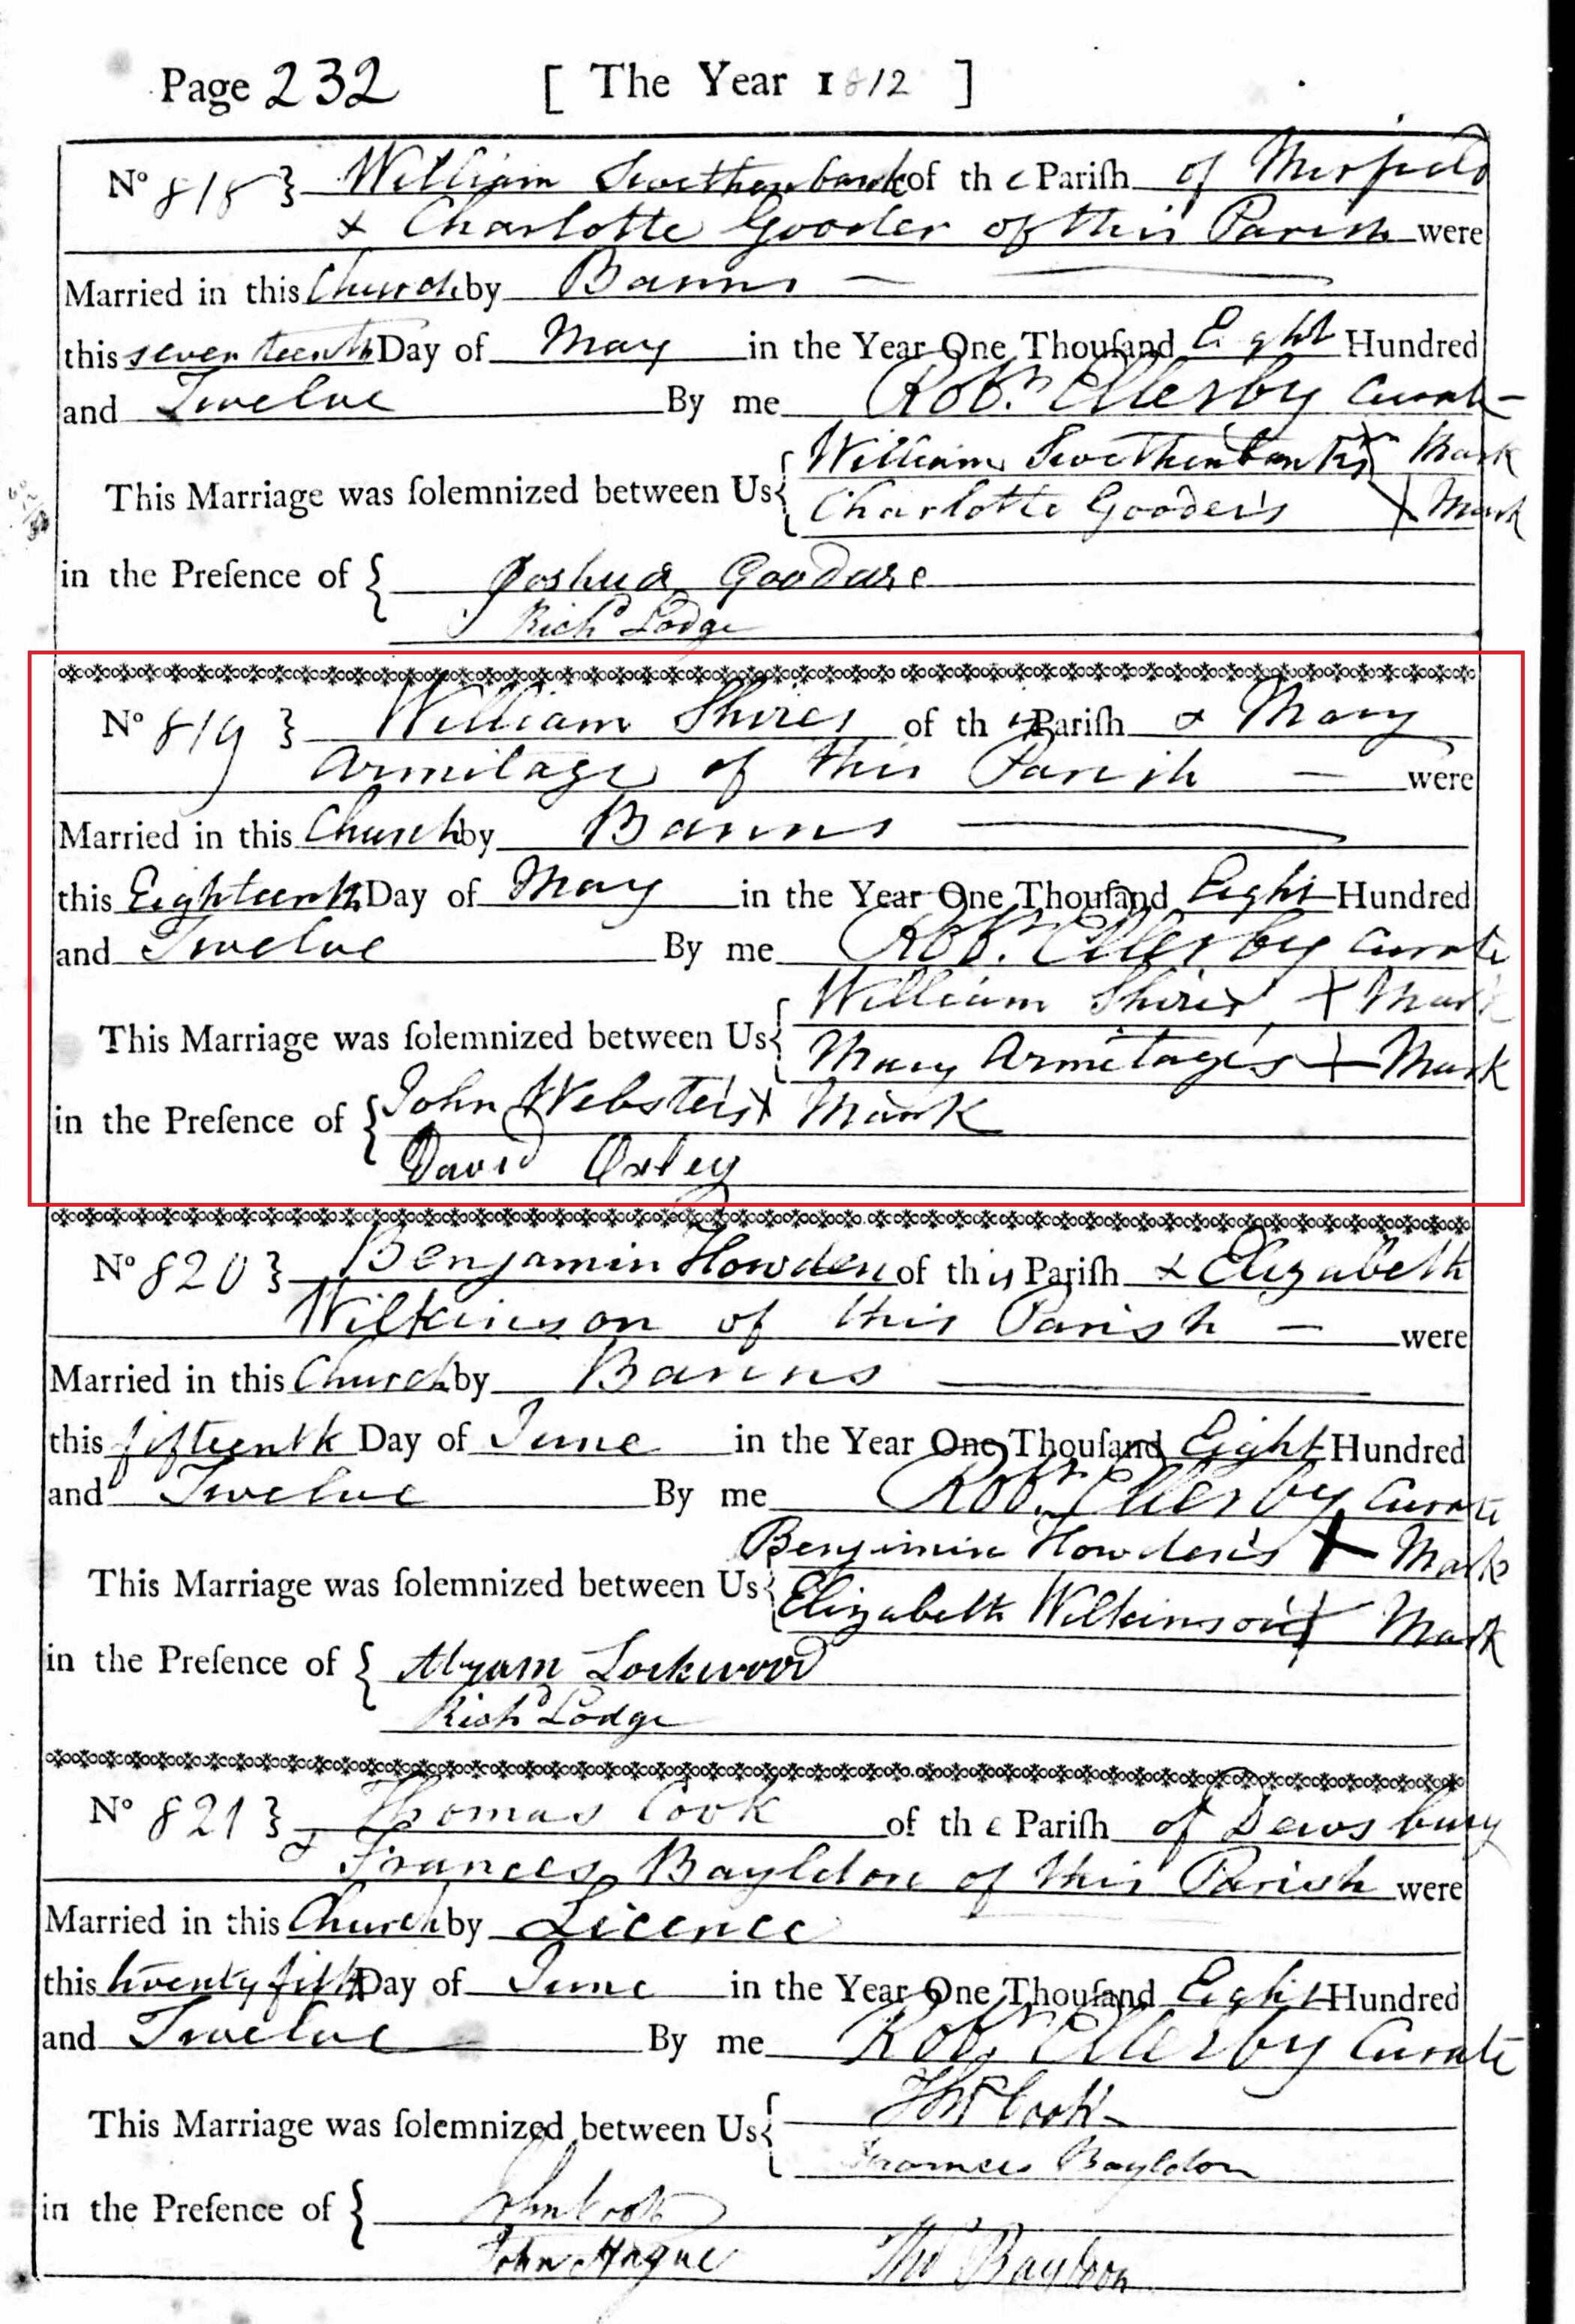 Page 232 [ The Year 1812 ]
No 818 } William Swethenbank of the Pariſh of Mirfield
& Charlotte Gooder of this Parish were
Married in this Church by Banns
this seventeenth Day of May in the Year One Thouſand Eight Hundred
and Twelve By me Robt. Ellerby Curate
William Swethenbank's X Mark
This Marriage was ſolemnized between Us {
Charlotte Gooder's X Mark
in the Preſence of { Joshua Goodare
Richd Lodge
No 819 } William Shires of this Pariſh & Mary
Armitage of this Parish were
Married in this Church by Banns
this Eighteenth Day of May in the Year One Thouſand Eight Hundred
and Twelve By me Robt. Ellerby Curate
William Shires X Mark
This Marriage was ſolemnized between Us {
Mary Armitage's X Mark
in the Preſence of { John Webster's X Mark
David Oxley
No 820 } Benjamin Howden of this Pariſh & Elizabeth
Wilkinson of this Parish were
Married in this Church by Banns
this fifteenth Day of June in the Year One Thouſand Eight Hundred
and Twelve By me Robt. Ellerby Curate
Benjimin Howden's X Mark
This Marriage was ſolemnized between Us {
Elizabeth Wilkinson's X Mark
in the Preſence of { Abram Lockwood
Richd Lodge
No 821 } Thomas Cook of the Pariſh of Dewsbury
& Frances Bayldon of this Parish were
Married in this Church by Licence
this twenty fifth Day of June in the Year One Thouſand Eight Hundred
and Twelve By me Robt. Ellerby Curate
Thos Cook
This Marriage was ſolemnized between Us {
Frances Bayldon
in the Preſence of { John Cook
John Hague Thos Bayldon